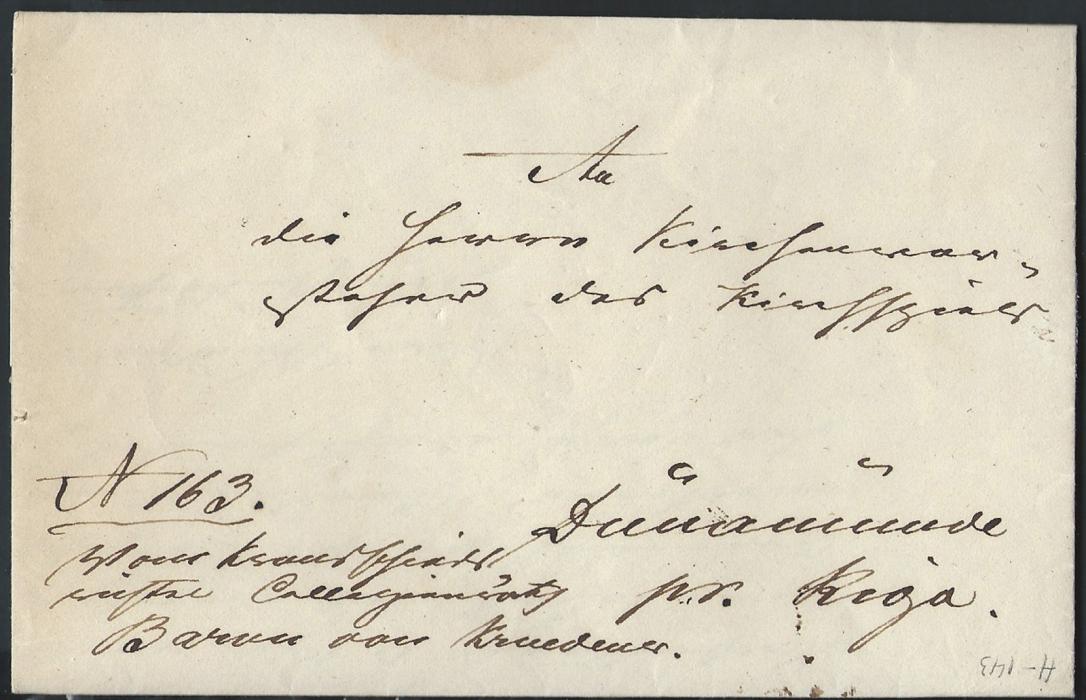 An
die Herren Kirchenvor-
steher des Kirchspiels
Dünamünde
pr. Riga.
N 163.
Vom Kronsschieds
richter Collegienrath
Baron von Kruedener.
H-143